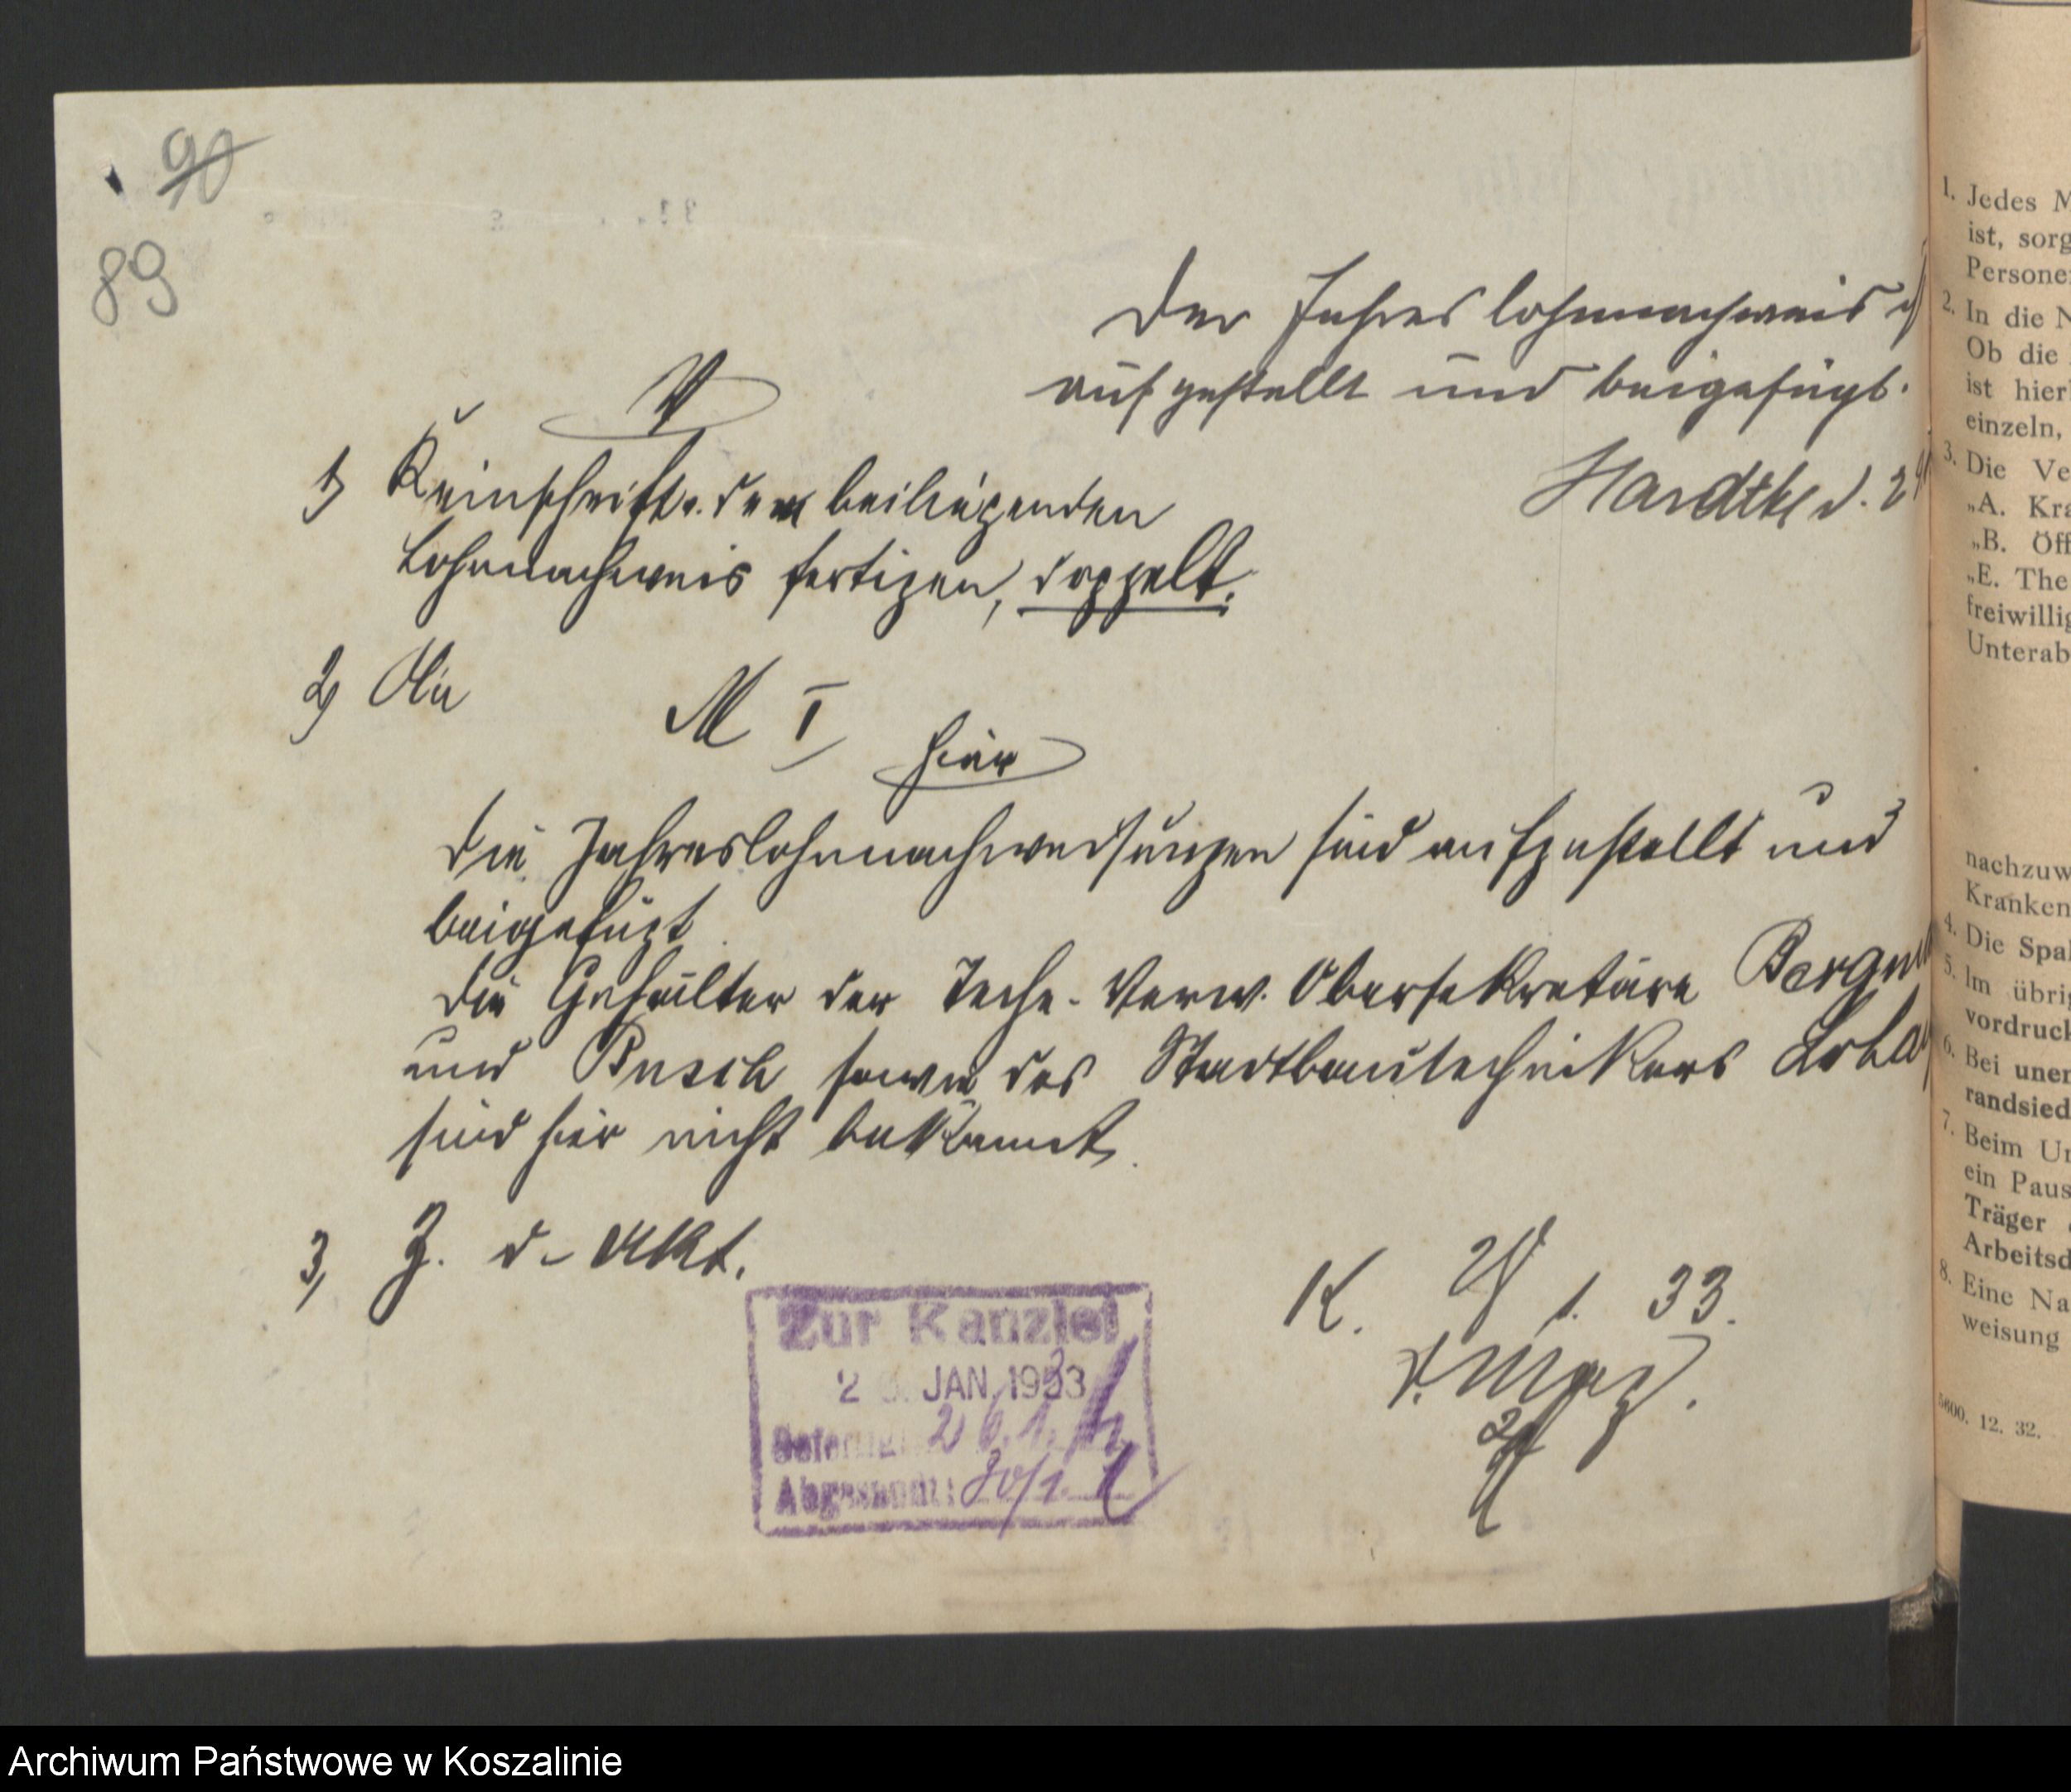 90
89
Der Jahreslohnnachweis ist
aufgestellt und beigefügt.
V
1) Reinschrift v. dem beiliegenden
Lohnnachweis fertigen, doppelt.
2) An
M I
hier
Die Jahreslohnnachweisungen sind aufgestellt und
beigefügt.
Die Gehälter der Techn. Verw. Obersekretäre
und Busch sowie des Stadtbautechnikers
sind hier nicht bekannt.
3) Z. d. Akt.
K. 1. 33.
Zur Kanzlei
JAN. 1933
Gefertigt: 26.1.
Abgesandt: 30/1.
1. Jedes M
ist, sorg
Persone
2. In die N
Ob die
ist hier
einzeln,
3. Die Ve
„A. Kra
„B. Öff
„E. The
freiwillig
Unterab
nachzuw
Kranken
4. Die Spal
5. Im übrig
vordruck
6. Bei uner
randsied
7. Beim Un
ein Paus
Träger
Arbeitsd
8. Eine Na
weisung
5600. 12. 32.
Archiwum Państwowe w Koszalinie